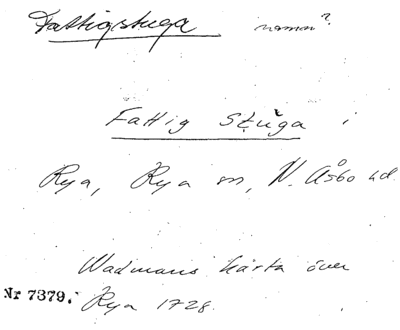 Fattigstuga namn?
Fattig Stuga i
Rya, Rya sn, N. Åsbo hd.
Wadmans karta över
Nr 7379. Rya 1728.